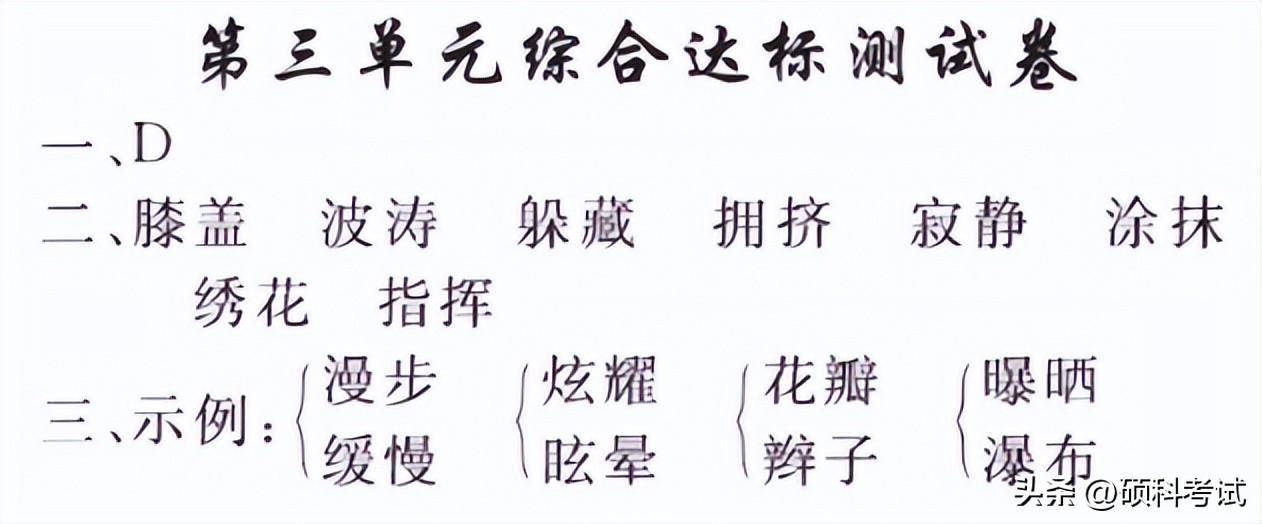 第三单元综合达标测试卷
一、D
二、膝盖 波涛 躲藏 拥挤 寂静 涂抹
绣花 指挥
三、示例：{漫步 {炫耀 {花瓣 {曝晒
缓慢 眩晕 辫子 瀑布
头条 @硕科考试